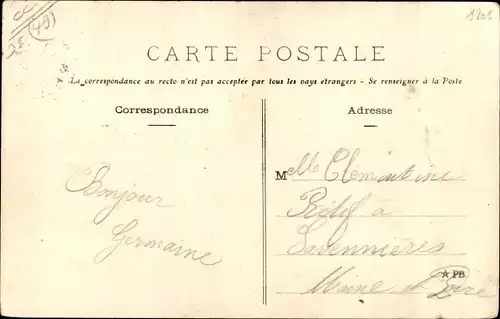 (49)
1201
CARTE POSTALE
La correspondance au recto n'est pas acceptée par tous les pays étrangers - Se renseigner à la Poste
Correspondance
Adresse
Melle Clémentine
Rétif à
Savennières
Maine et Loire
★ PB
Bonjour
Germaine